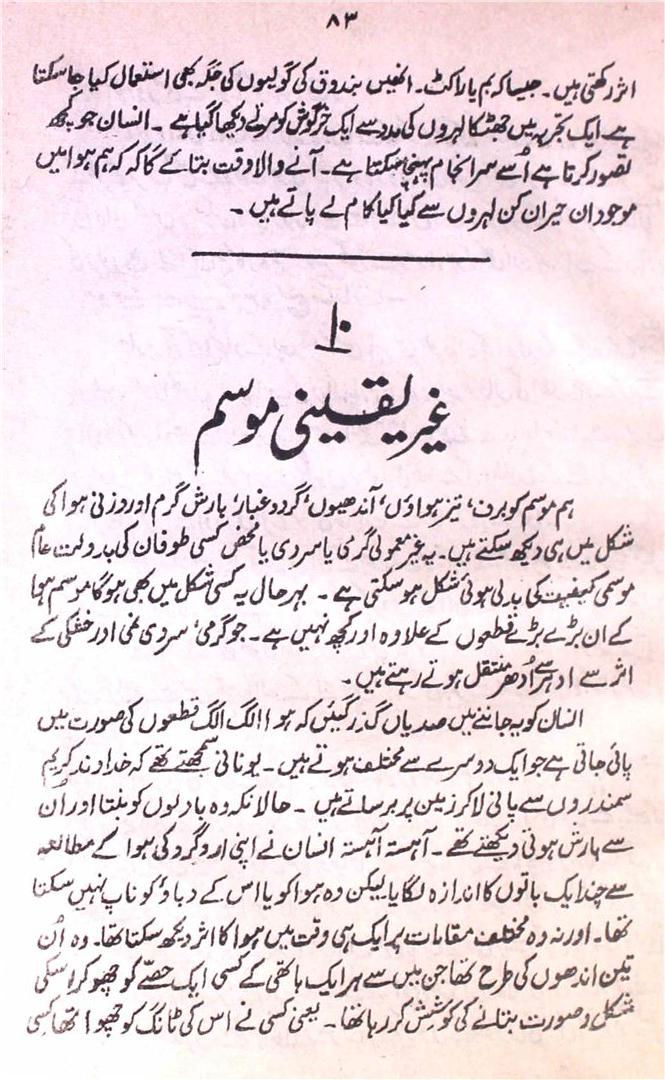 ۸۳
اثر رکھتی ہیں۔ جیسا کہ بم یا راکٹ۔ انھیں بندوق کی گولیوں کی جگہ بھی استعمال کیا جا سکتا
ہے۔ ایک تجربہ میں جھٹکا لہروں کی مدد سے ایک خرگوش کو مرتے دیکھا گیا ہے۔ انسان جو کچھ
تصور کرتا ہے اُسے سرانجام پہنچا سکتا ہے۔ آنے والا وقت بتائے گا کہ کہ ہم ہوا میں
موجود ان حیران کن لہروں سے کیا کیا کام لے پاتے ہیں۔
۱۰
غیر یقینی موسم
ہم موسم کو برف، تیز ہواؤں، آندھیوں، گرد و غبار، بارش گرم اور وزنی ہوا کی
شکل میں ہی دیکھ سکتے ہیں۔ یہ غیر معمولی گرمی یا سردی یا محض کسی طوفان کی بدولت عام
موسمی کیفیت کی بدلی ہوئی شکل ہو سکتی ہے۔ بہرحال یہ کسی شکل میں بھی ہوگا موسم ہوا
کے ان بڑے بڑے قطعوں کے علاوہ اور کچھ نہیں ہے۔ جو گرمی، سردی نمی اور خشکی کے
اثر سے ادہر سے اُدھر منتقل ہوتے رہتے ہیں۔
انسان کو یہ جاننے میں صدیاں گذر گئیں کہ ہوا الگ الگ قطعوں کی صورت میں
پائی جاتی ہے جو ایک دوسرے سے مختلف ہوتے ہیں۔ یونانی سمجھتے تھے کہ خداوند کریم
سمندروں سے پانی لا کر زمین پر برساتے ہیں۔ حالانکہ وہ بادلوں کو بنتا اور اُن
سے بارش ہوتی دیکھتے تھے۔ آہستہ آہستہ انسان نے اپنی اردگرد کی ہوا کے مطالعہ
سے چند ایک باتوں کا اندازہ لگایا لیکن وہ ہوا کو یا اس کے دباؤ کو ناپ نہیں سکتا
تھا۔ اور نہ وہ مختلف مقامات پر ایک ہی وقت میں ہوا کا اثر دیکھ سکتا تھا۔ وہ اُن
تین اندھوں کی طرح تھا جن میں سے ہر ایک ہاتھی کے کسی ایک حصّے کو چھو کر اسکی
شکل و صورت بنانے کی کوشش کر رہا تھا۔ یعنی کسی نے اس کی ٹانگ کو چھوا تھا کسی